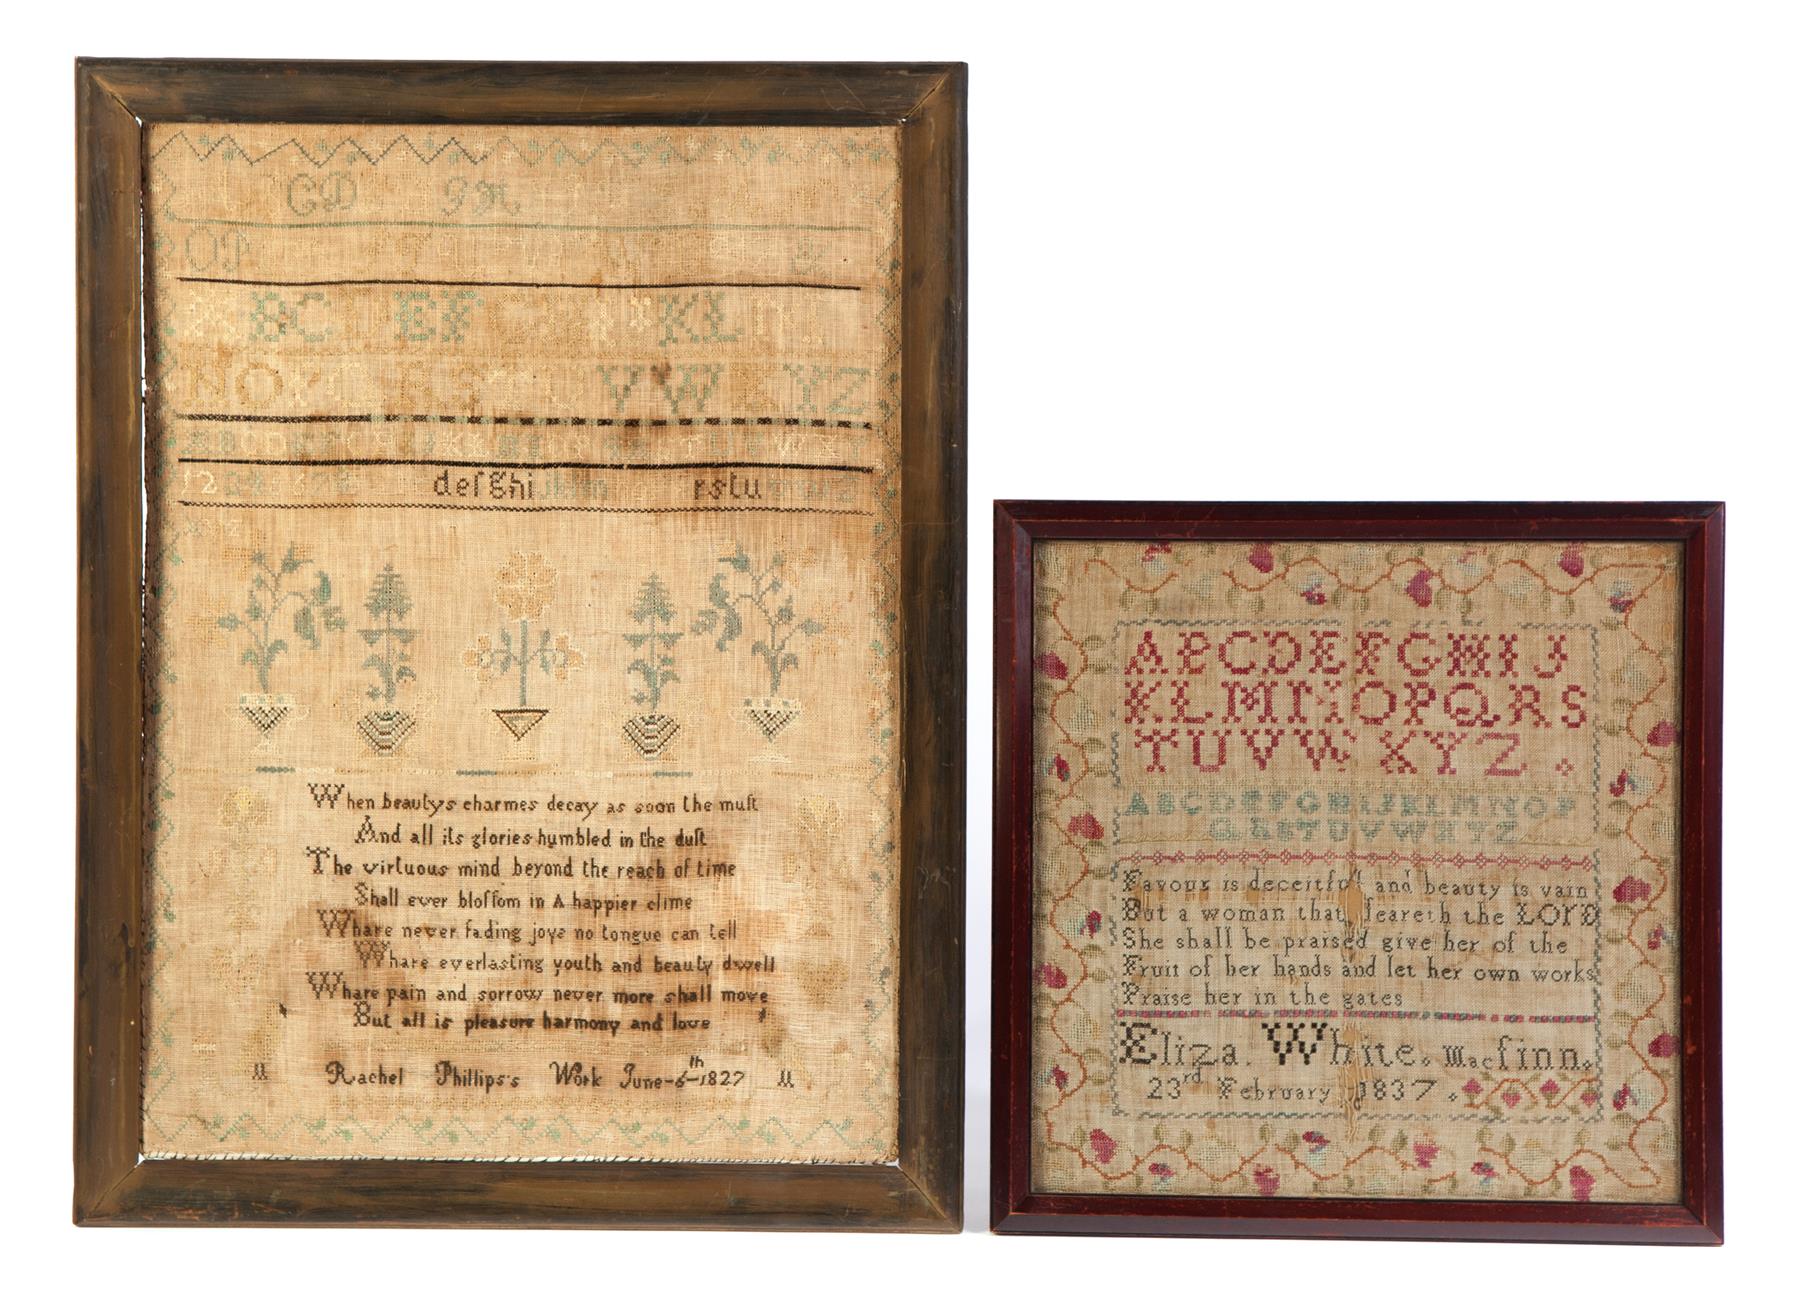 CD JK
OP
A BC EF KL
NOPQ RS VW YZ
ABCDEF
12 defghijklm rstu
When beautys charmes decay as soon the muſt
And all its glories humbled in the duſt
The virtuous mind beyond the reach of time
Shall ever bloſſom in A happier clime
Whare never fading joys no tongue can tell
Whare everlasting youth and beauty dwell
Whare pain and sorrow never more shall move
But all is pleasure harmony and love
Rachel Phillips's Work June-6th-1827
ABCDEFGHIJ
KLMNOPQRS
TUVW XYZ
ABCDEFGHIJKLMNOP
QRSTUVWXYZ
Favour is deceitful and beauty is vain
But a woman that feareth the LORD
She shall be praised give her of the
Fruit of her hands and let her own works
Praise her in the gates
Eliza. White. Macfinn.
23rd February 1837.